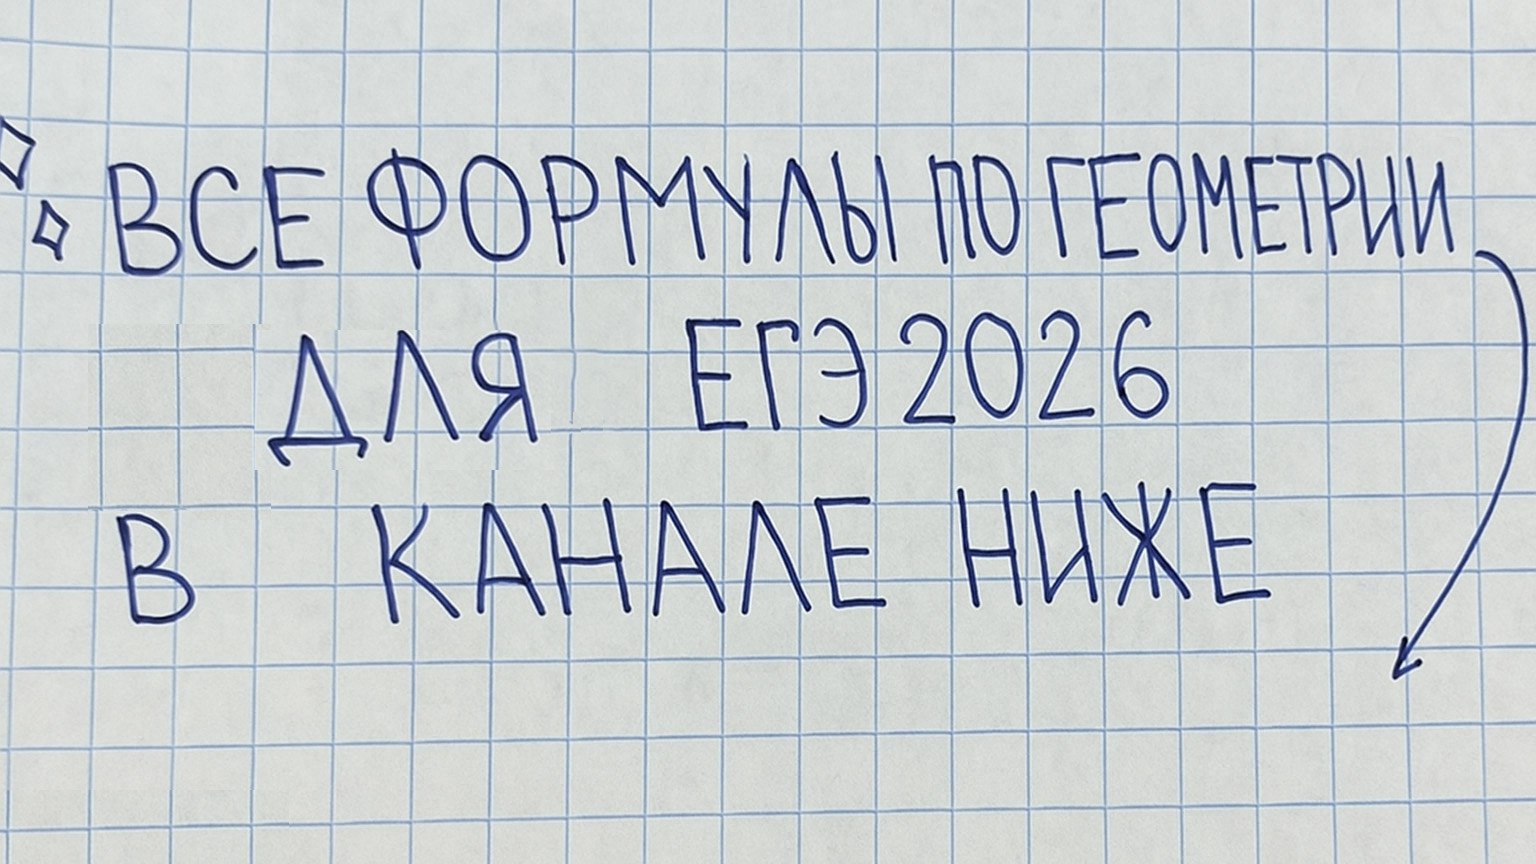 ВСЕ ФОРМУЛЫ ПО ГЕОМЕТРИИ
ДЛЯ ЕГЭ 2026
В КАНАЛЕ НИЖЕ